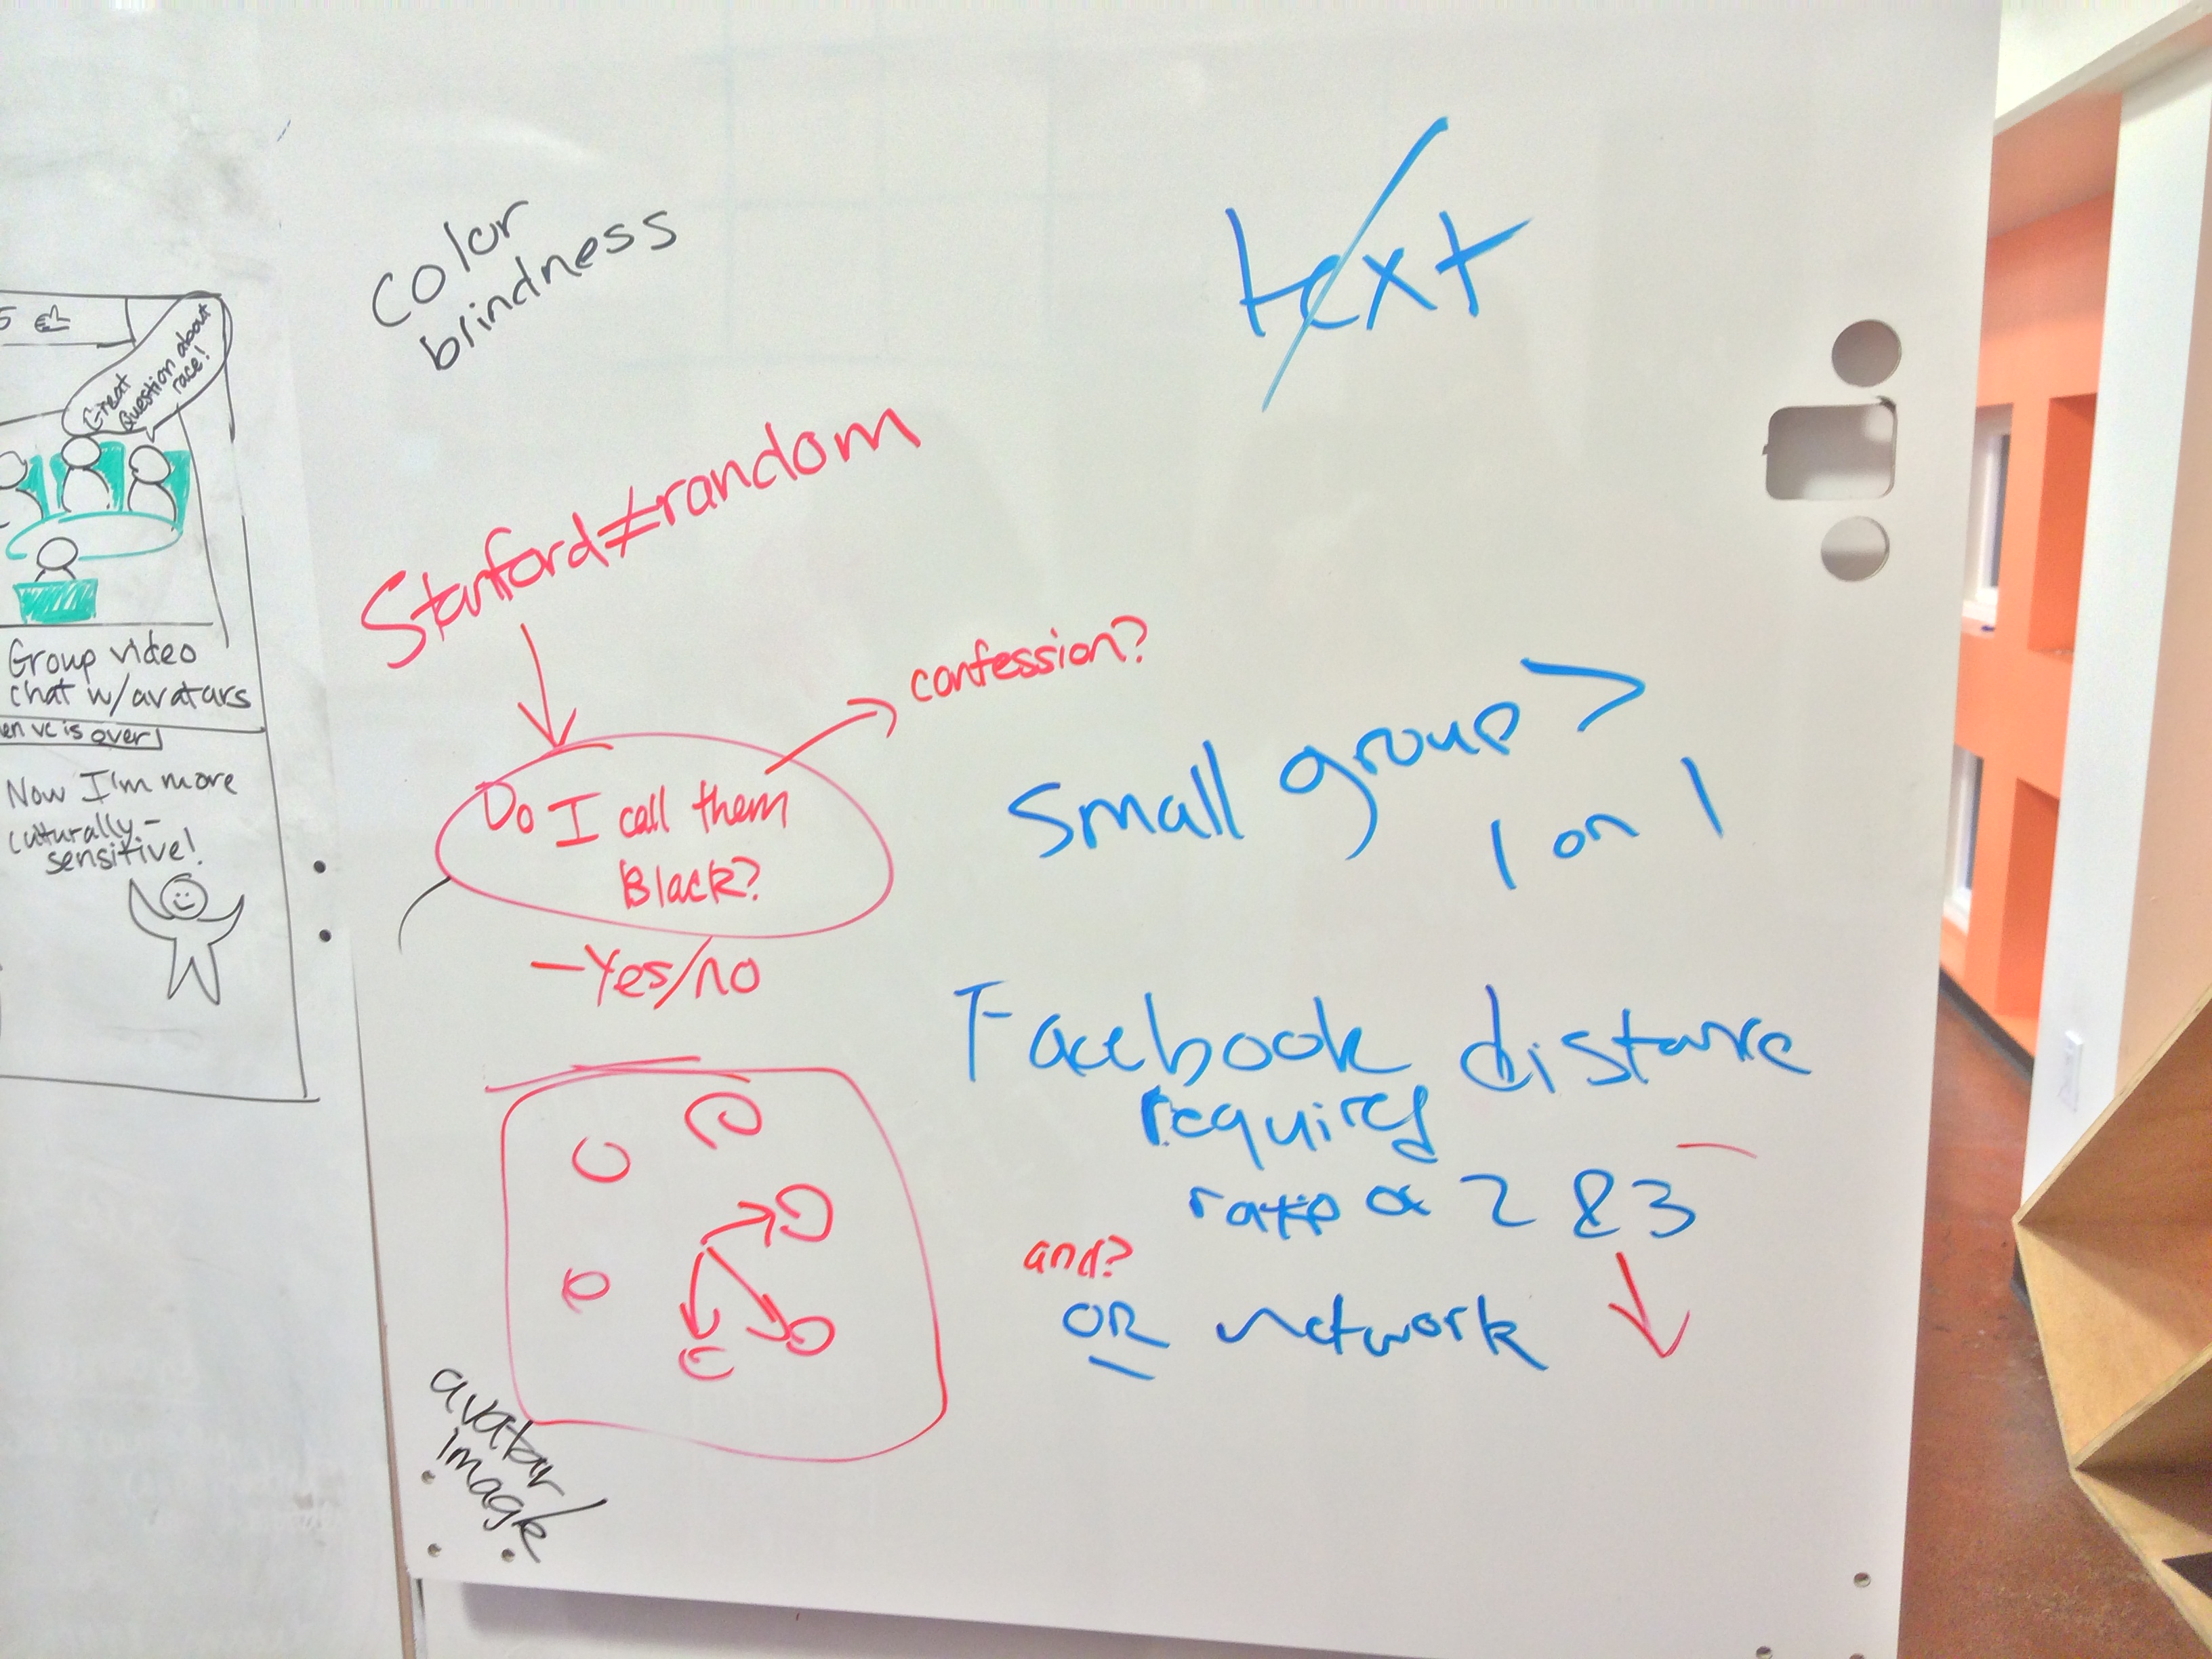 5
Great
question about
race!
Group video
chat w/avatars
en vc is over
Now I'm more
culturally-
sensitive!
Color
blindness
text
Stanford≠random
confession?
Do I call them
Black?
-Yes/no
Small group >
1 on 1
Facebook distance
requires
ratio
2 & 3
and?
OR network
avatar/
image